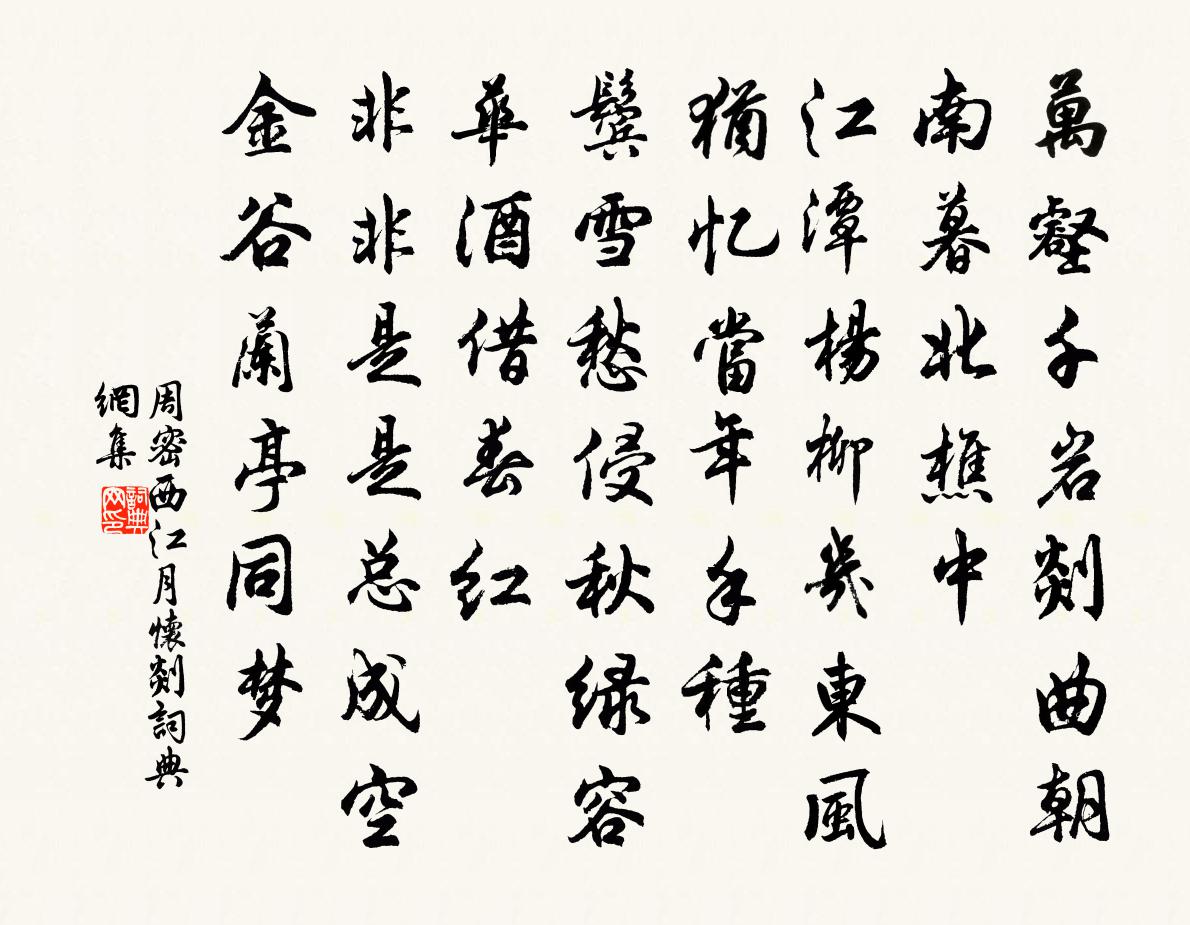 萬壑千岩剡曲朝
南暮北樵中
江潭楊柳幾東風
猶忆當年手種
鬓雪愁侵秋绿容
華酒借春红
非非是是总成空
金谷蘭亭同梦
周密西江月懷剡詞典
網集
詞典
网印